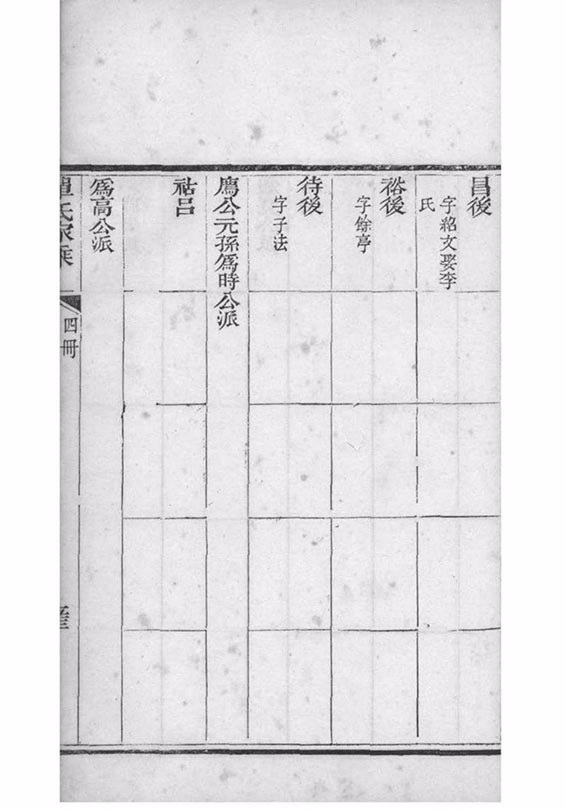 昌後
字紹文娶李
氏
裕後
字餘亭
待後
字子法
鷹公元孫爲時公派
祜呂
爲高公派
氏家乘
四冊